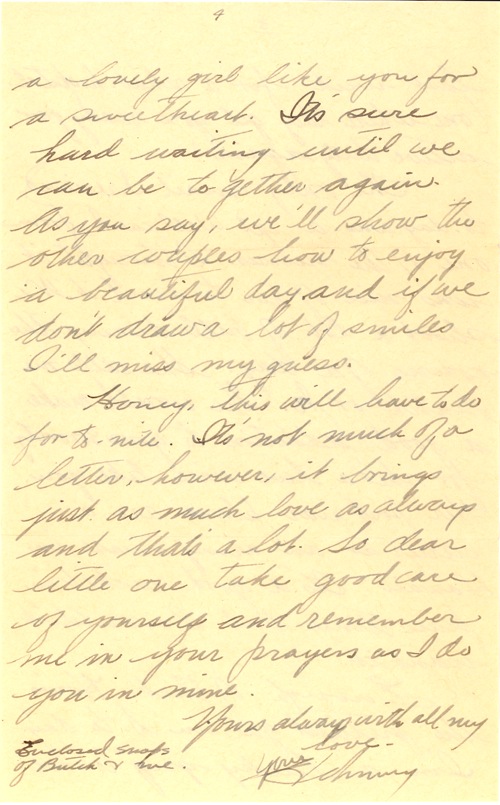 4
a lovely girl like you for
a sweetheart. It's sure
hard waiting until we
can be to gether again.
As you say, we'll show the
other couples how to enjoy
a beautiful day and if we
don't draw a lot of smiles
I'll miss my guess.
Honey, this will have to do
for to-nite. It's not much of a
letter, however, it brings
just as much love as always
and that's a lot. So dear
little one take good care
of yourself and remember
me in your prayers as I do
you in mine.
Yours always with all my
love-
Your Johnny
Enclosed snaps
of Butch & me.